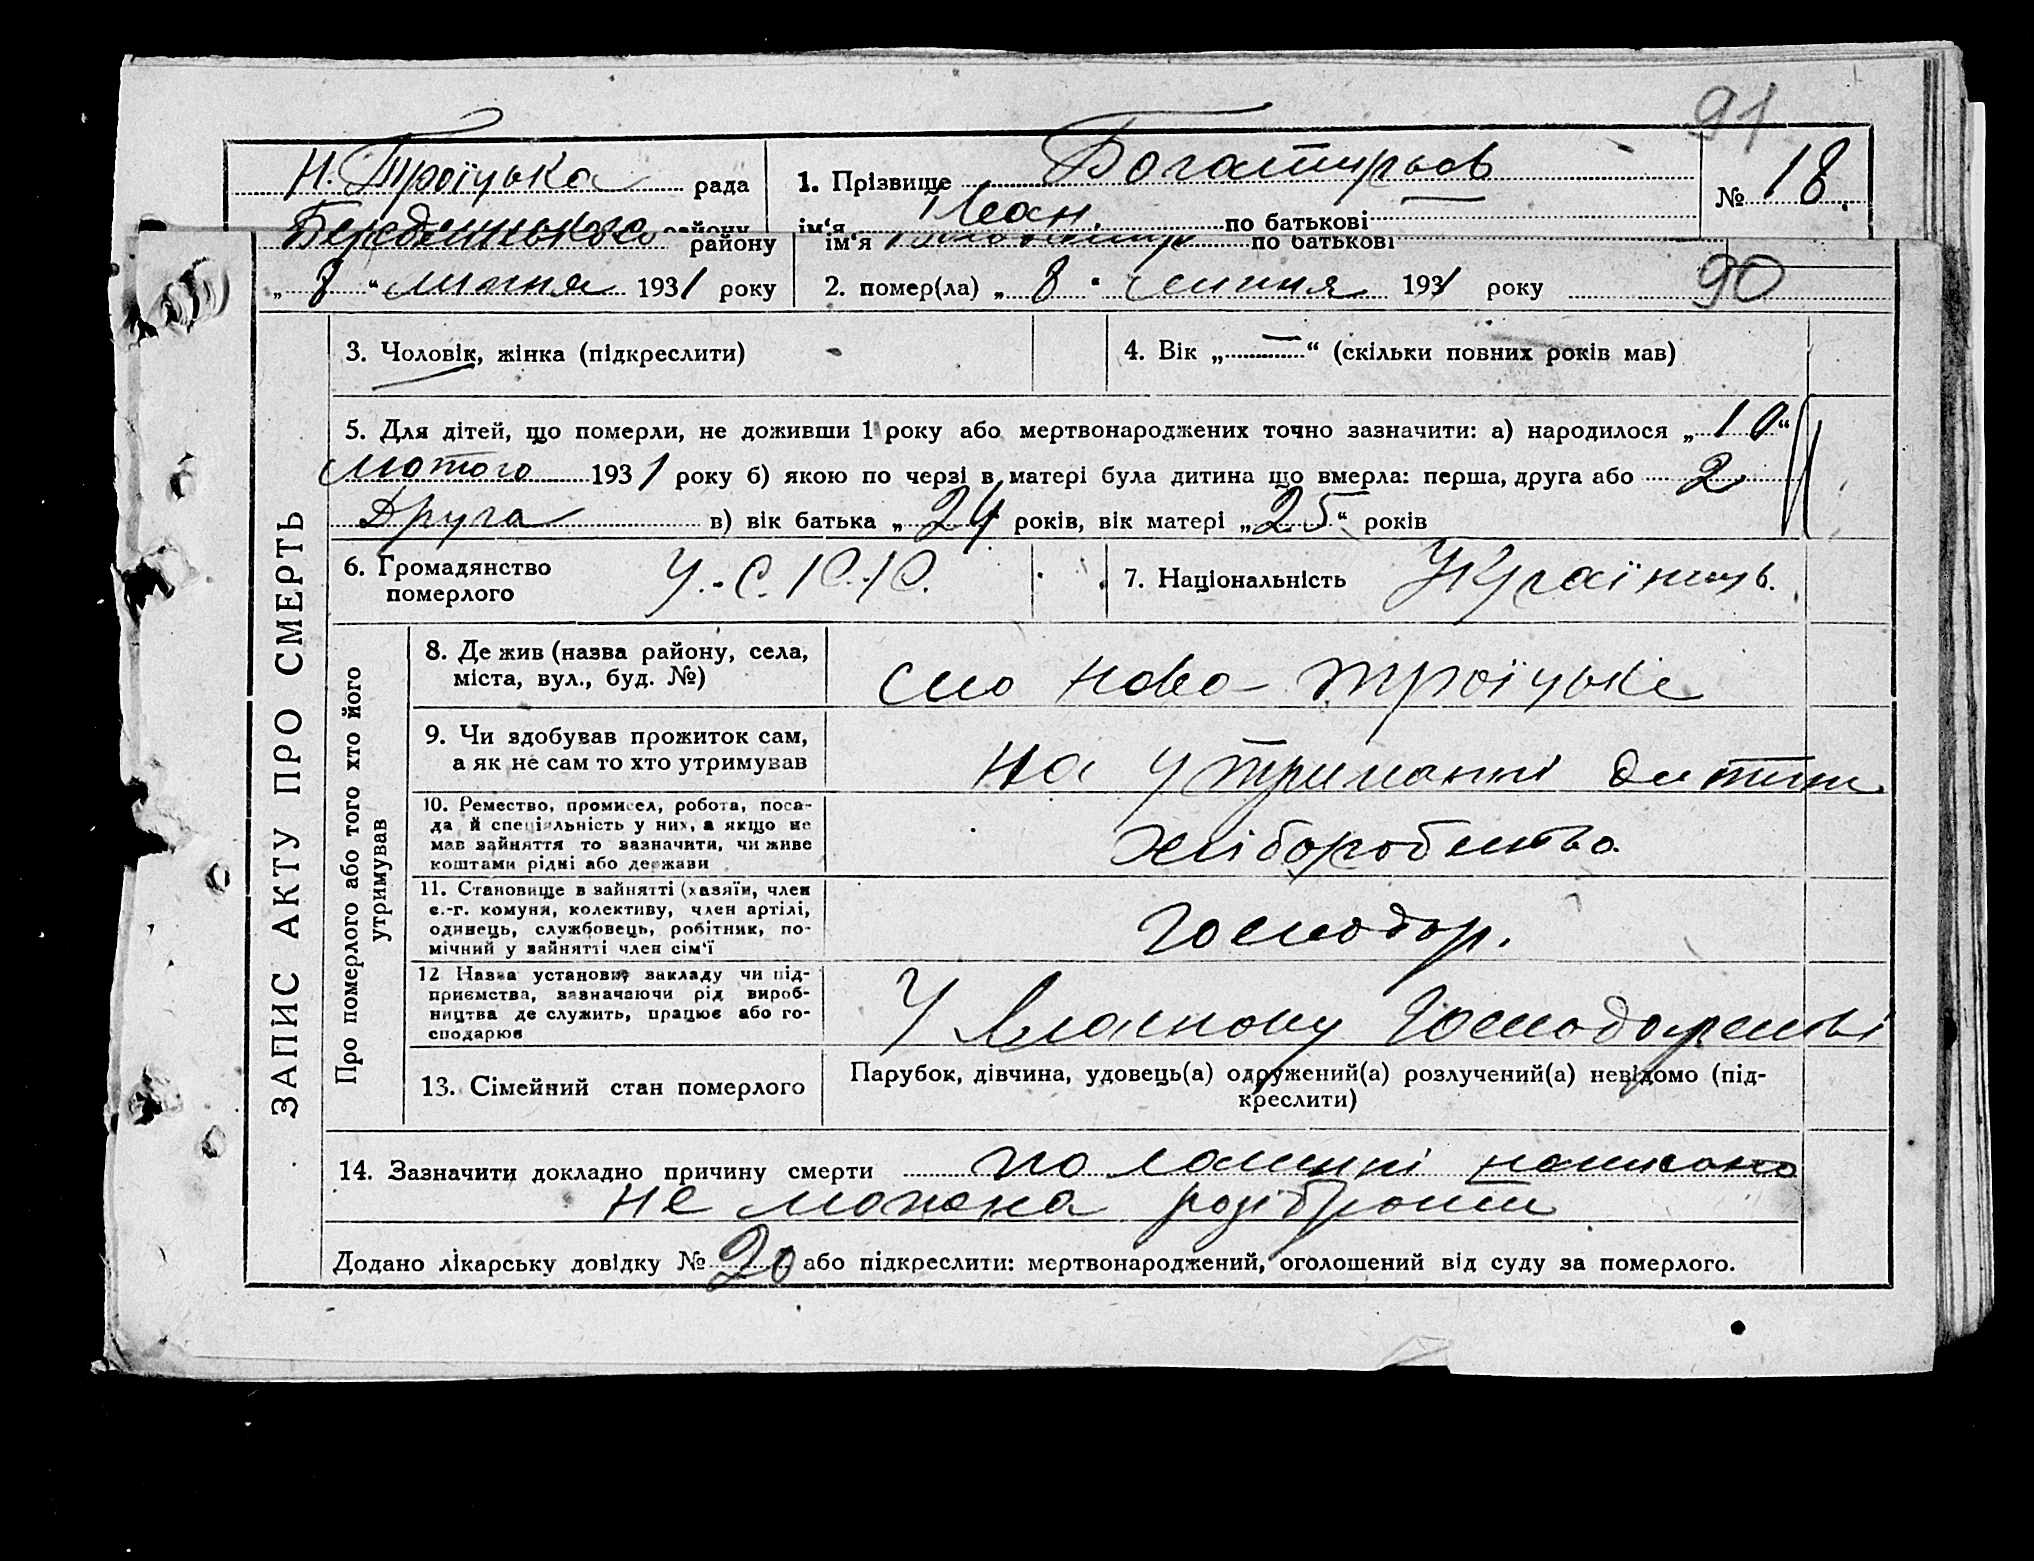 91
Н. Троїцька рада
1. Прізвище Богатирьов
№ 18.
Бердянського району
ім‘я Іван. по батькові —
району
ім‘я по батькові
„ 8 “ липня 1931 року
2. помер(ла) „ 8 “ липня 1931 року
90
3. Чоловік, жінка (підкреслити)
4. Вік „ — “ (скільки повних років мав)
5. Для дітей, що померли, не доживши 1 року або мертвонароджених точно зазначити: а) народилося „ 10 “
лютого 1931 року б) якою по черзі в матері була дитина що вмерла: перша, друга або 2
друга в) вік батька „ 24 років, вік матері „ 25 “ років
6. Громадянство
померлого
У.-С.Р.Р.
7. Національність Українць.
ЗАПИС АКТУ ПРО СМЕРТЬ
Про померлого або того хто його
утримував
8. Де жив (назва району, села,
міста, вул., буд. №)
село Ново-Троїцьке
9. Чи здобував прожиток сам,
а як не сам то хто утримував
На утриманні
10. Ремество, промисел, робота, поса-
да й спеціяльність у них, а якщо не
мав зайняття то зазначити, чи живе
коштами рідні або держави
хліборобство
11. Становище в зайнятті (хазяїн, член
с.-г. комуни, колективу, член артілі,
одинець, службовець, робітник, по-
мічний у зайнятті член сім'ї
Господор.
12 Назва установи, закладу чи під-
приємства, зазначаючи рід вироб-
ництва де служить, працює або го-
сподарює
У власному Господарстві
13. Сімейний стан померлого
Парубок, дівчина, удовець(а) одружений(а) розлучений(а) невідомо (під-
креслити)
14. Зазначити докладно причину смерти по латинні написано
не можна розібрати
Додано лікарську довідку № 20 або підкреслити: мертвонароджений, оголошений від суду за померлого.